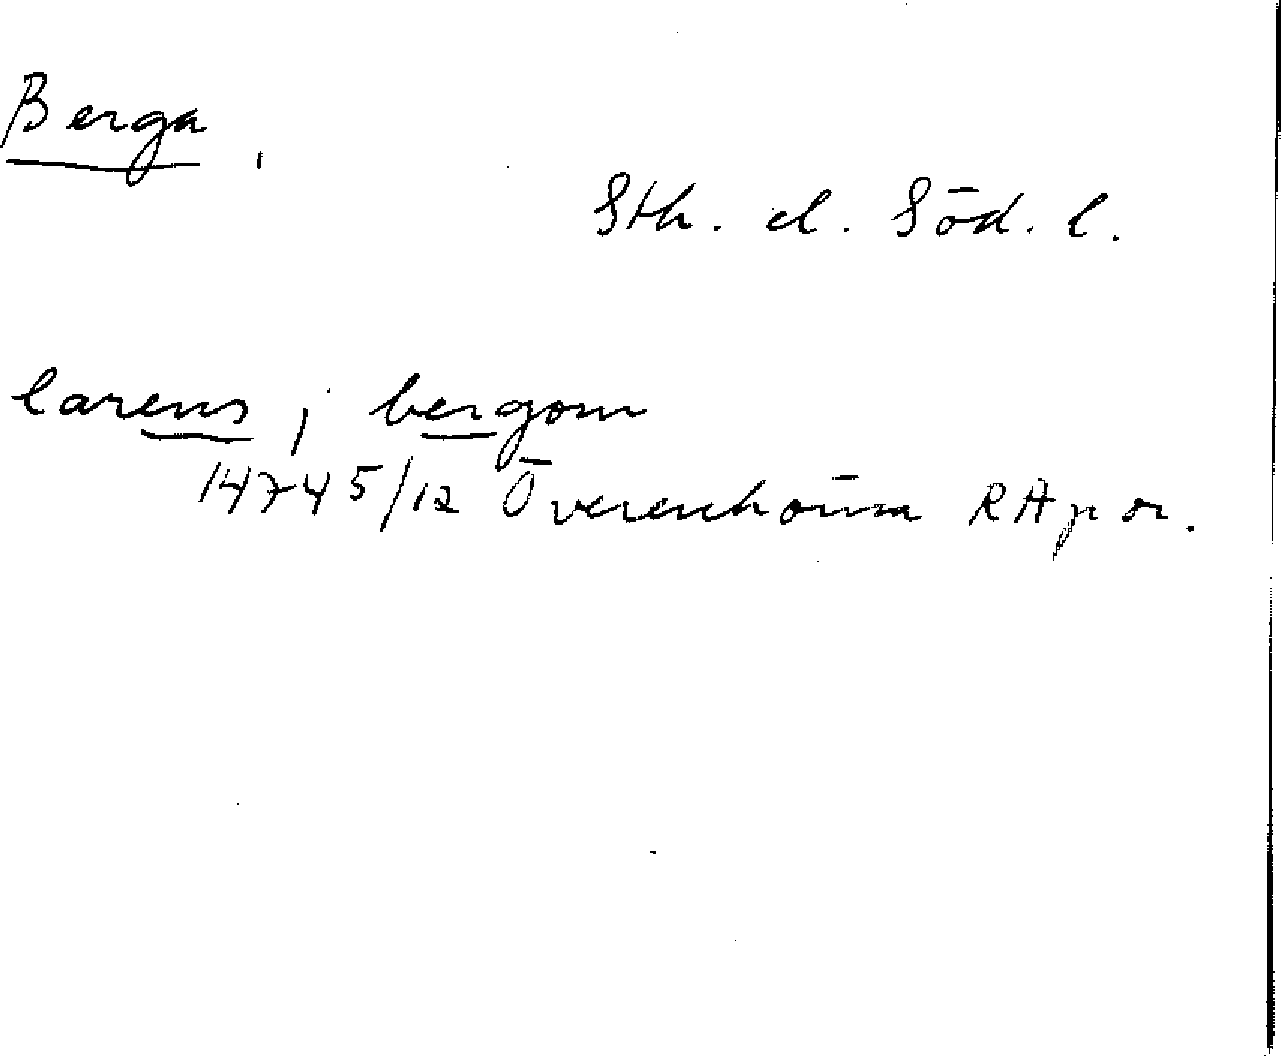 Berga,
Sth. d. Söd. l.
larens i bergom
14745/12 Överenhörna RAp or.